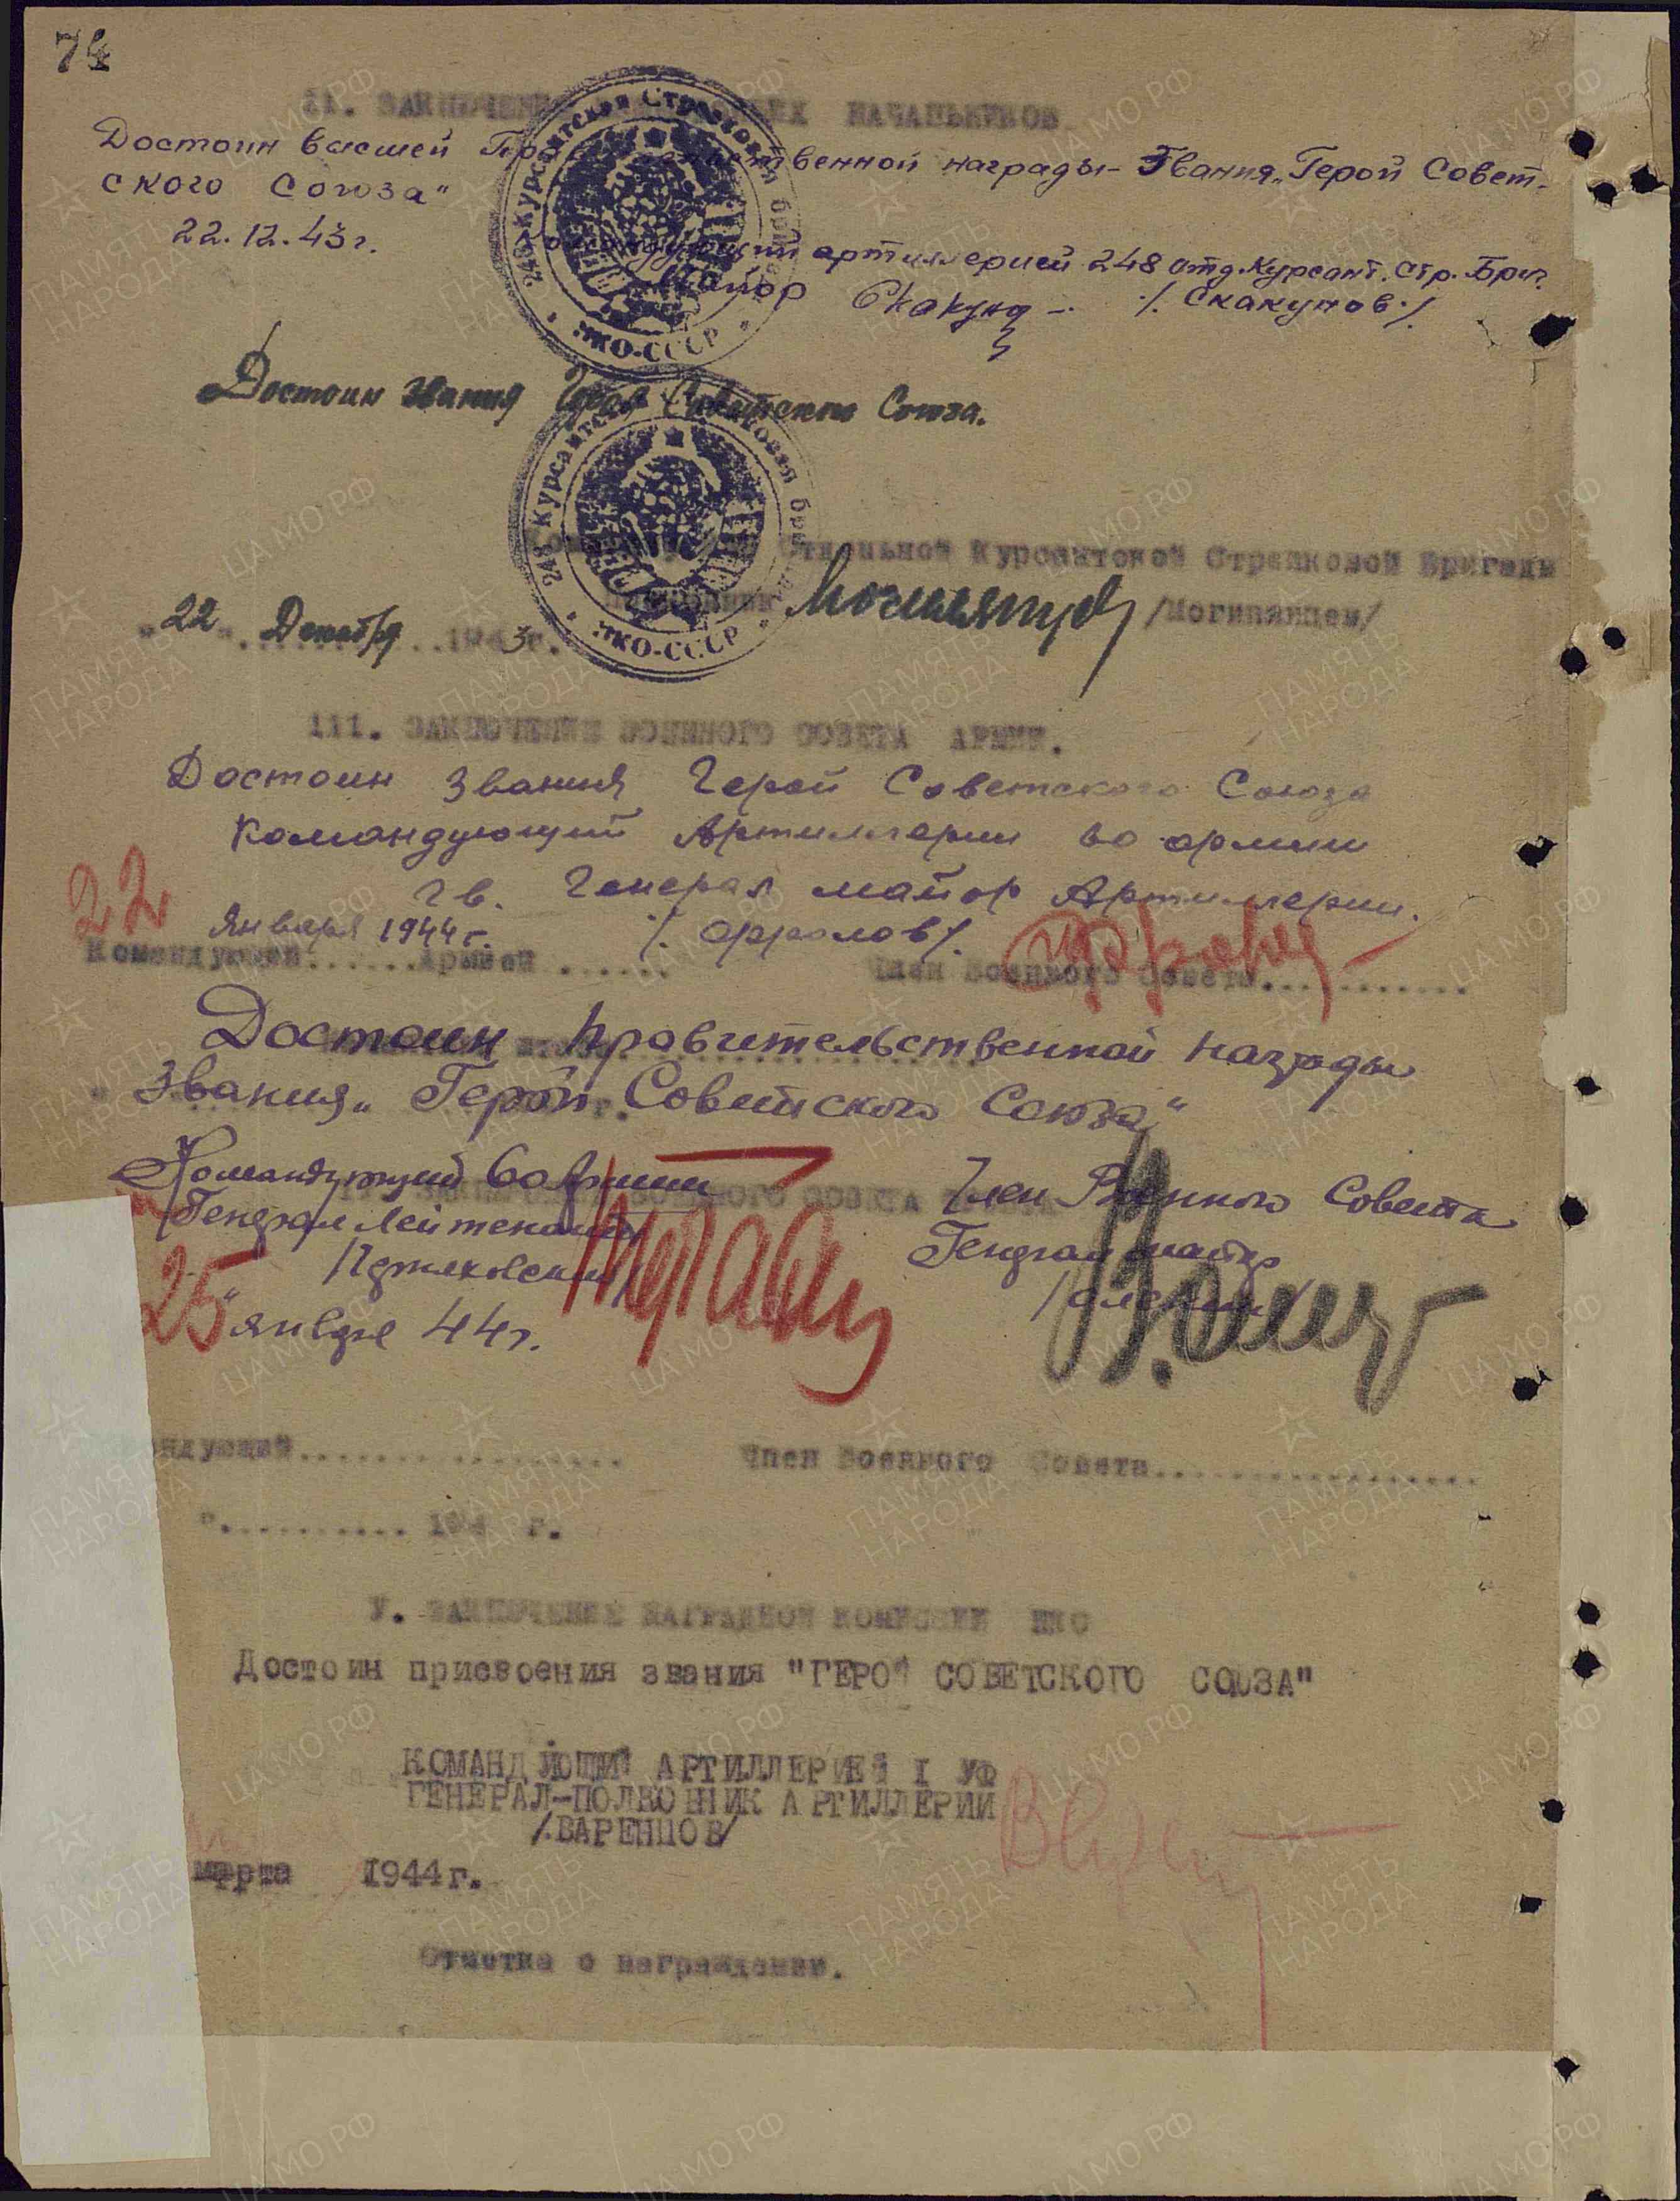 74
II. ЗАКЛЮЧЕНИЕ НАЧАЛЬНИКОВ
Достоин высшей Правительственной награды - Звания „Герой Совет-
ского Союза"
22.12.43г.
Командующий артиллерией 248 отд. Курсант. Стр. Бриг.
Майор Скакунов /. Скакунов ./
Достоин звания Героя Советского Союза.
Отдельной Курсантской Стрелковой Бригады
Полковник /Могилянцев/
"22" Декабря 1943г.
III. ЗАКЛЮЧЕНИЕ ВОЕННОГО СОВЕТА АРМИИ.
Достоин звания Герой Советского Союза
Командующий Артиллерии 60 армии
Гв. Генерал майор Артиллерии.
22 Января 1944г. /. Фролов /.
Командующий......Армией ...... Член Военного Совета...........
Достоин правительственной награды
Звания „Герой Советского Союза"
Командующий 60 Армии Член Военного Совета
Генерал Лейтенант Генерал майор
/Черняховский/ /Оленин/
25 января 44г.
ндующий................. Член Военного Совета.................
".......... 194 г.
У. ЗАКЛЮЧЕНИЕ НАГРАДНОЙ КОМИССИИ НКО
Достоин присвоения звания "ГЕРОЙ СОВЕТСКОГО СОЮЗА"
КОМАНДУЮЩИЙ АРТИЛЛЕРИЕЙ I УФ
ГЕНЕРАЛ-ПОЛКОВНИК АРТИЛЛЕРИИ
/.ВАРЕНЦОВ/
марта 1944г.
Отметка о награждении.
248 Курсантская Стрелковая бригада
НКО-СССР
248 Курсантская Стрелковая бригада
НКО-СССР
ПАМЯТЬ НАРОДА
ЦА МО РФ